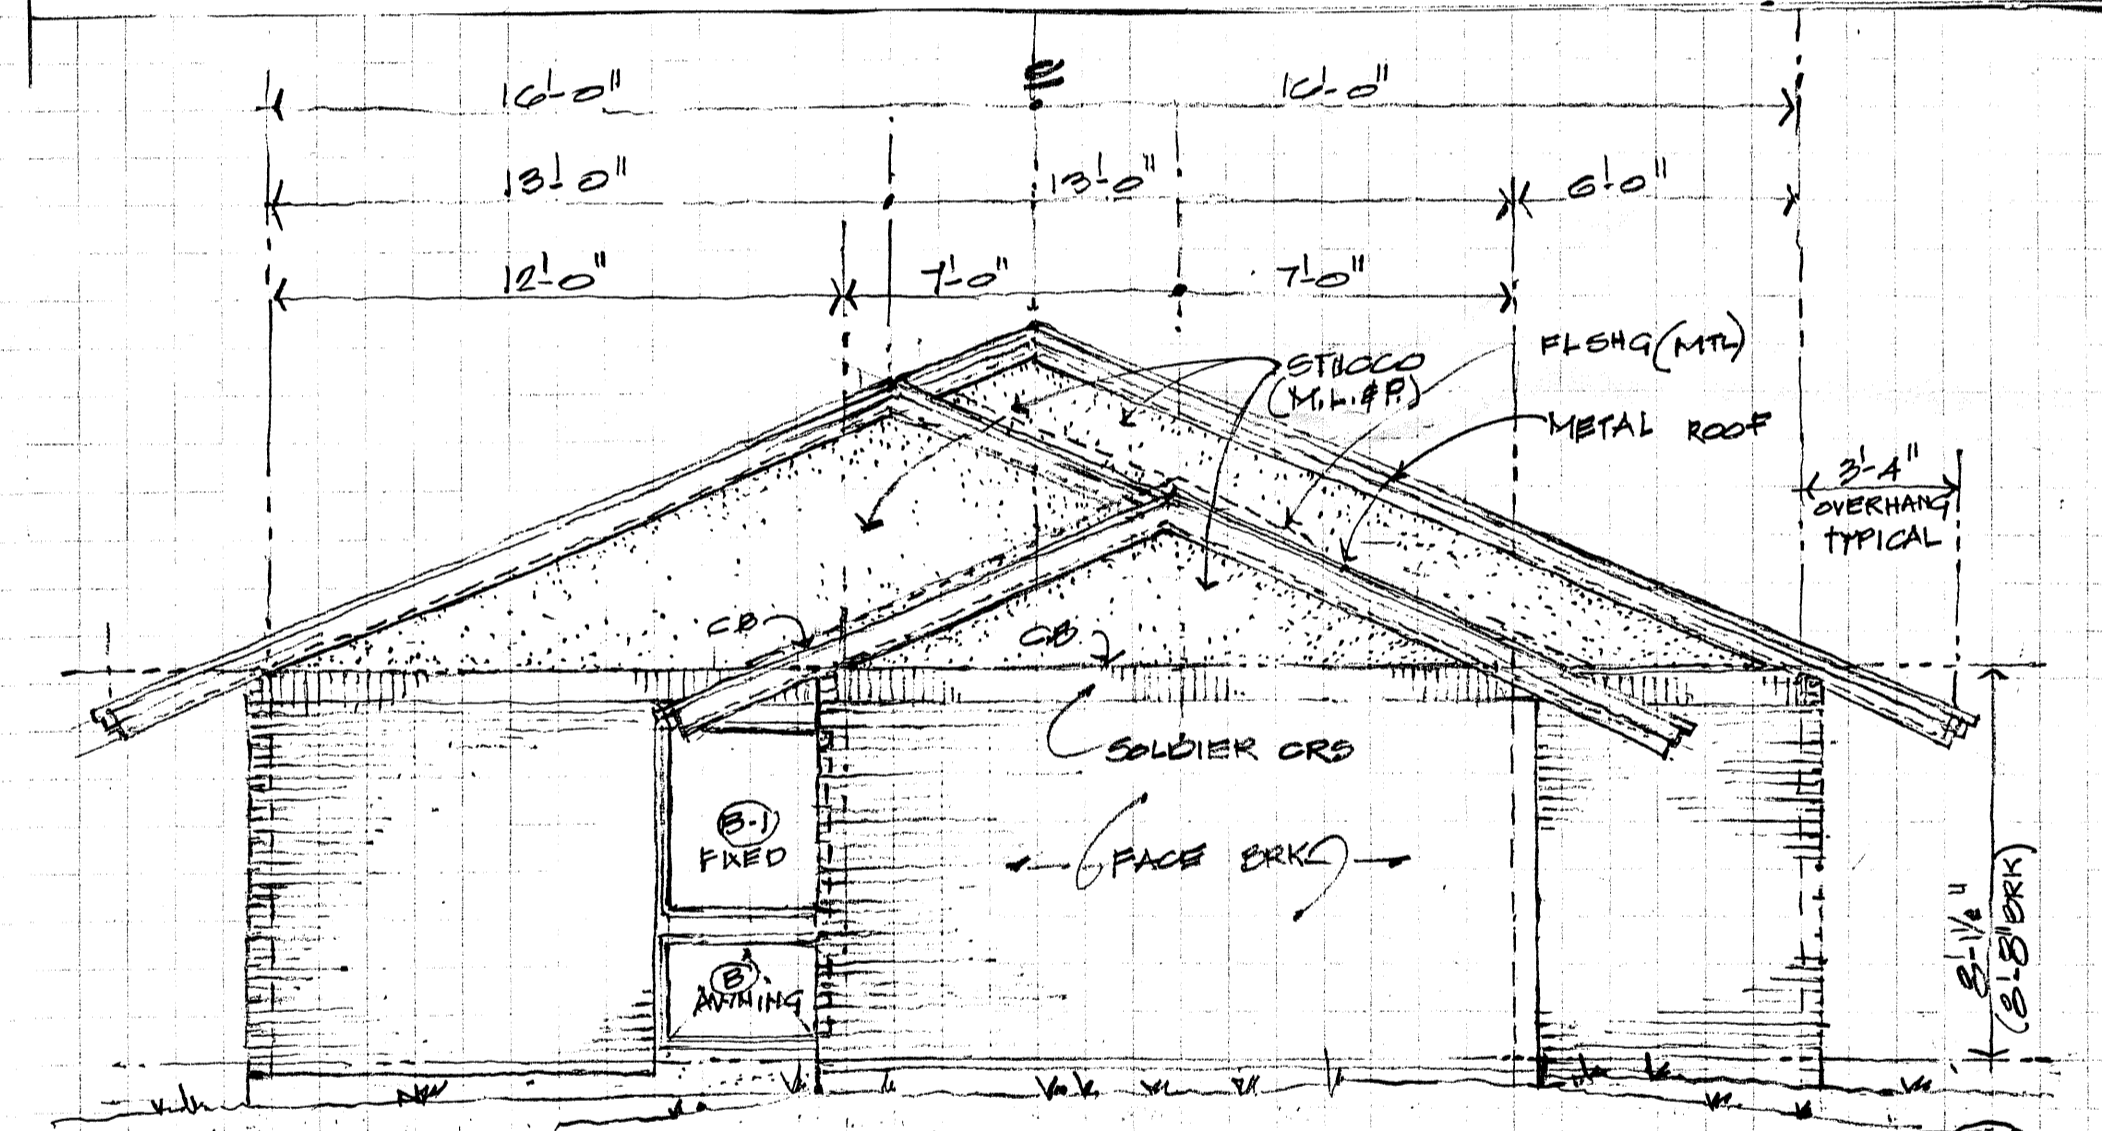 16'-0" ℄ 16'-0"
13'-0" 13'-0" 6'-0"
12'-0" 7'-0" 7'-0"
STUCCO
(M.L.&P.)
FLSHG (MTL)
METAL ROOF
3'-4"
OVERHANG
TYPICAL
CB CB
SOLDIER CRS
B-1
FIXED
FACE BRK
B
AWNING
8'-1 1/2"
(8'-8" BRK)